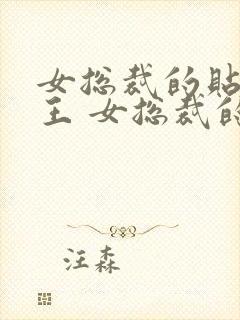 女总裁的貼
王 女总裁的
汪森